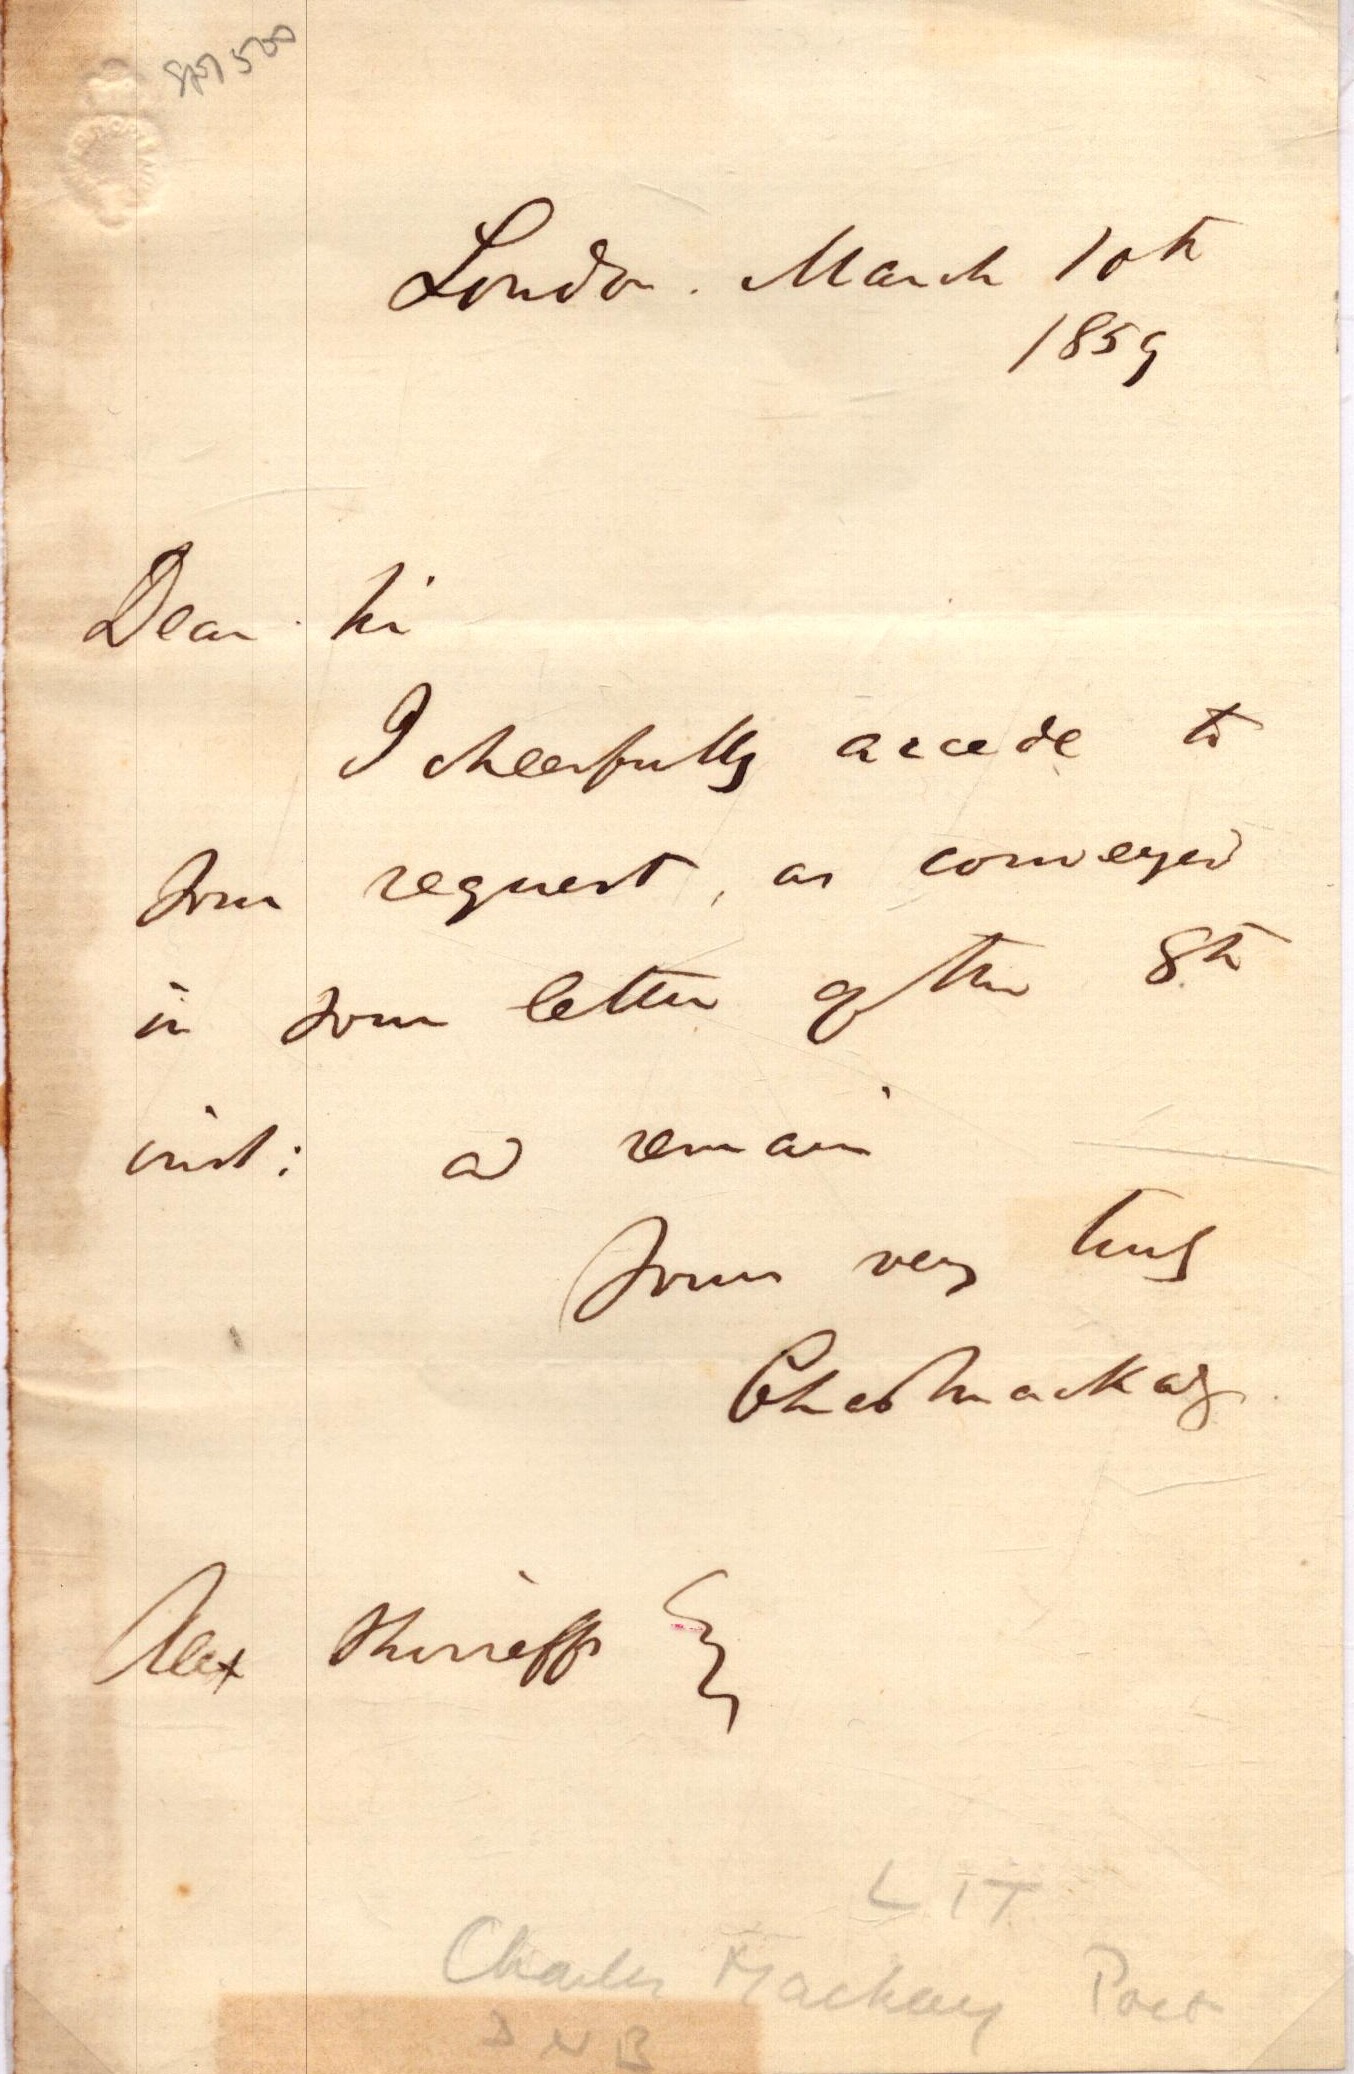 London. March 10th
1859
Dear Sir
I cheerfully accede to
your request, as conveyed
in your letter of the 8th
inst: and remain
Yours very truly
Chas Mackay
Alex Shirreffs Esq
LIT
Charles Mackay Poet
DNB